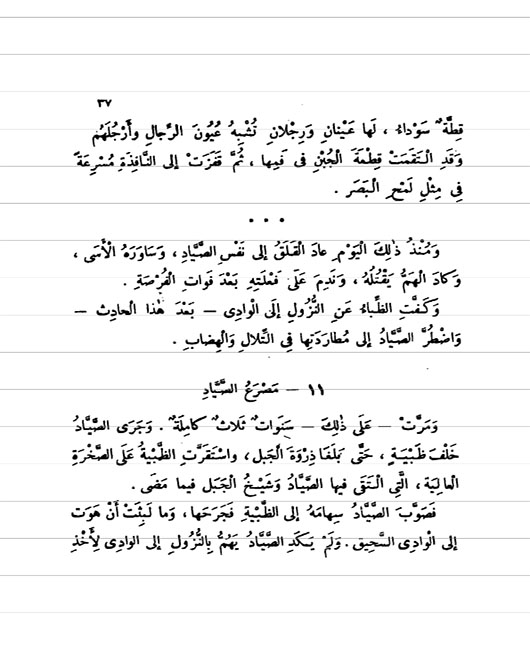 ٣٧
قِطَّةٌ سَوْداءُ ، لَها عَيْنانِ وَرِجْلانِ تُشْبِهُ عُيُونَ الرِّجالِ وأَرْجُلَهُم
وَقَدِ الْتَقَمَتْ قِطْعَةَ الْجُبْنِ فى فَمِها ، ثُمَّ قَفَزَتْ إلى النَّافِذَةِ مُسْرِعَةً
فِى مِثْلِ لَمْحِ الْبَصَرِ .
• • •
وَمُنْذُ ذٰلِكَ الْيَوْمِ عادَ الْقَلَقُ إلى نَفْسِ الصَّيَّادِ ، وَسَاوَرَهُ الْأَسَى ،
وَكادَ الْهَمُّ يَقْتُلُهُ ، وَنَدِمَ عَلَى فَعْلَتِهِ بَعْدَ فَواتِ الْفُرْصَةِ .
وَكَفَّتِ الظِّباءُ عَنِ النُّزُولِ إلَى الْوادِى — بَعْدَ هٰذا الْحادِثِ —
وَاضْطُرَّ الصَّيَّادُ إلى مُطارَدَتِها فِى التِّلالِ وَالْهِضابِ .
١١ — مَصْرَعُ الصَّيَّادِ
وَمَرَّتْ — عَلَى ذٰلِكَ — سَنَواتٌ ثَلاثٌ كامِلَةٌ . وَجَرَى الصَّيَّادُ
خَلْفَ ظَبْيَةٍ ، حَتَّى بَلَغا ذِرْوَةَ الْجَبَلِ ، واسْتَقَرَّتِ الظَّبْيَةُ عَلَى الصَّخْرَةِ
الْعالِيَةِ ، الَّتِى الْتَقَى فِيها الصَّيَّادُ وَشَيْخُ الْجَبَلِ فيما مَضَى .
فَصَوَّبَ الصَّيَّادُ سِهامَهُ إلى الظَّبْيَةِ فَجَرَحَها ، وَما لَبِثَتْ أَنْ هَوَت
إلى الْوادِى السَّحِيقِ . وَلَمْ يَكَدِ الصَّيَّادُ يَهُمُّ بِالنُّزُولِ إلى الوادِى لِأَخْذِ